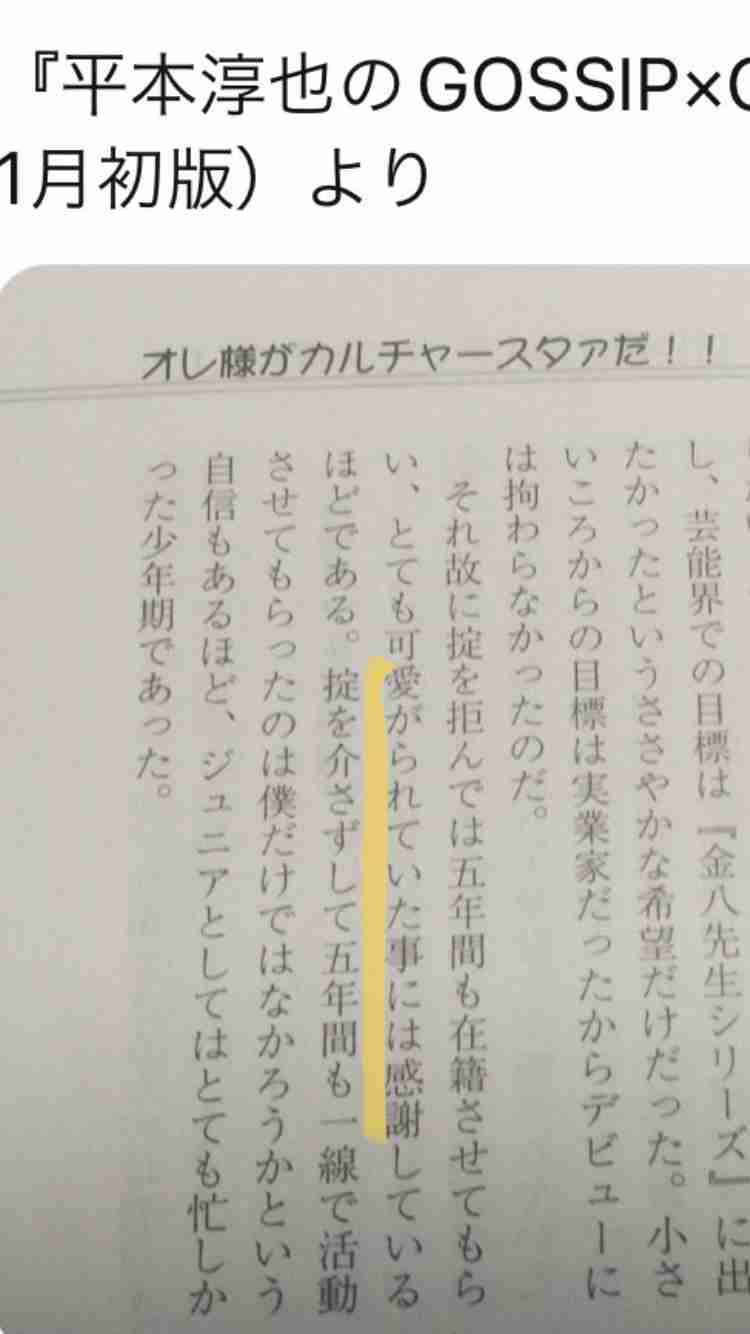 『平本淳也のGOSSIP×
1月初版）より
オレ様がカルチャースタァだ！！
し、芸能界での目標は『金八先生シリーズ』に出
たかったというささやかな希望だけだった。小さ
いころからの目標は実業家だったからデビューに
は拘わらなかったのだ。
それ故に掟を拒んでは五年間も在籍させてもら
い、とても可愛がられていた事には感謝している
ほどである。掟を介さずして五年間も一線で活動
させてもらったのは僕だけではなかろうかという
自信もあるほど、ジュニアとしてはとても忙しか
った少年期であった。